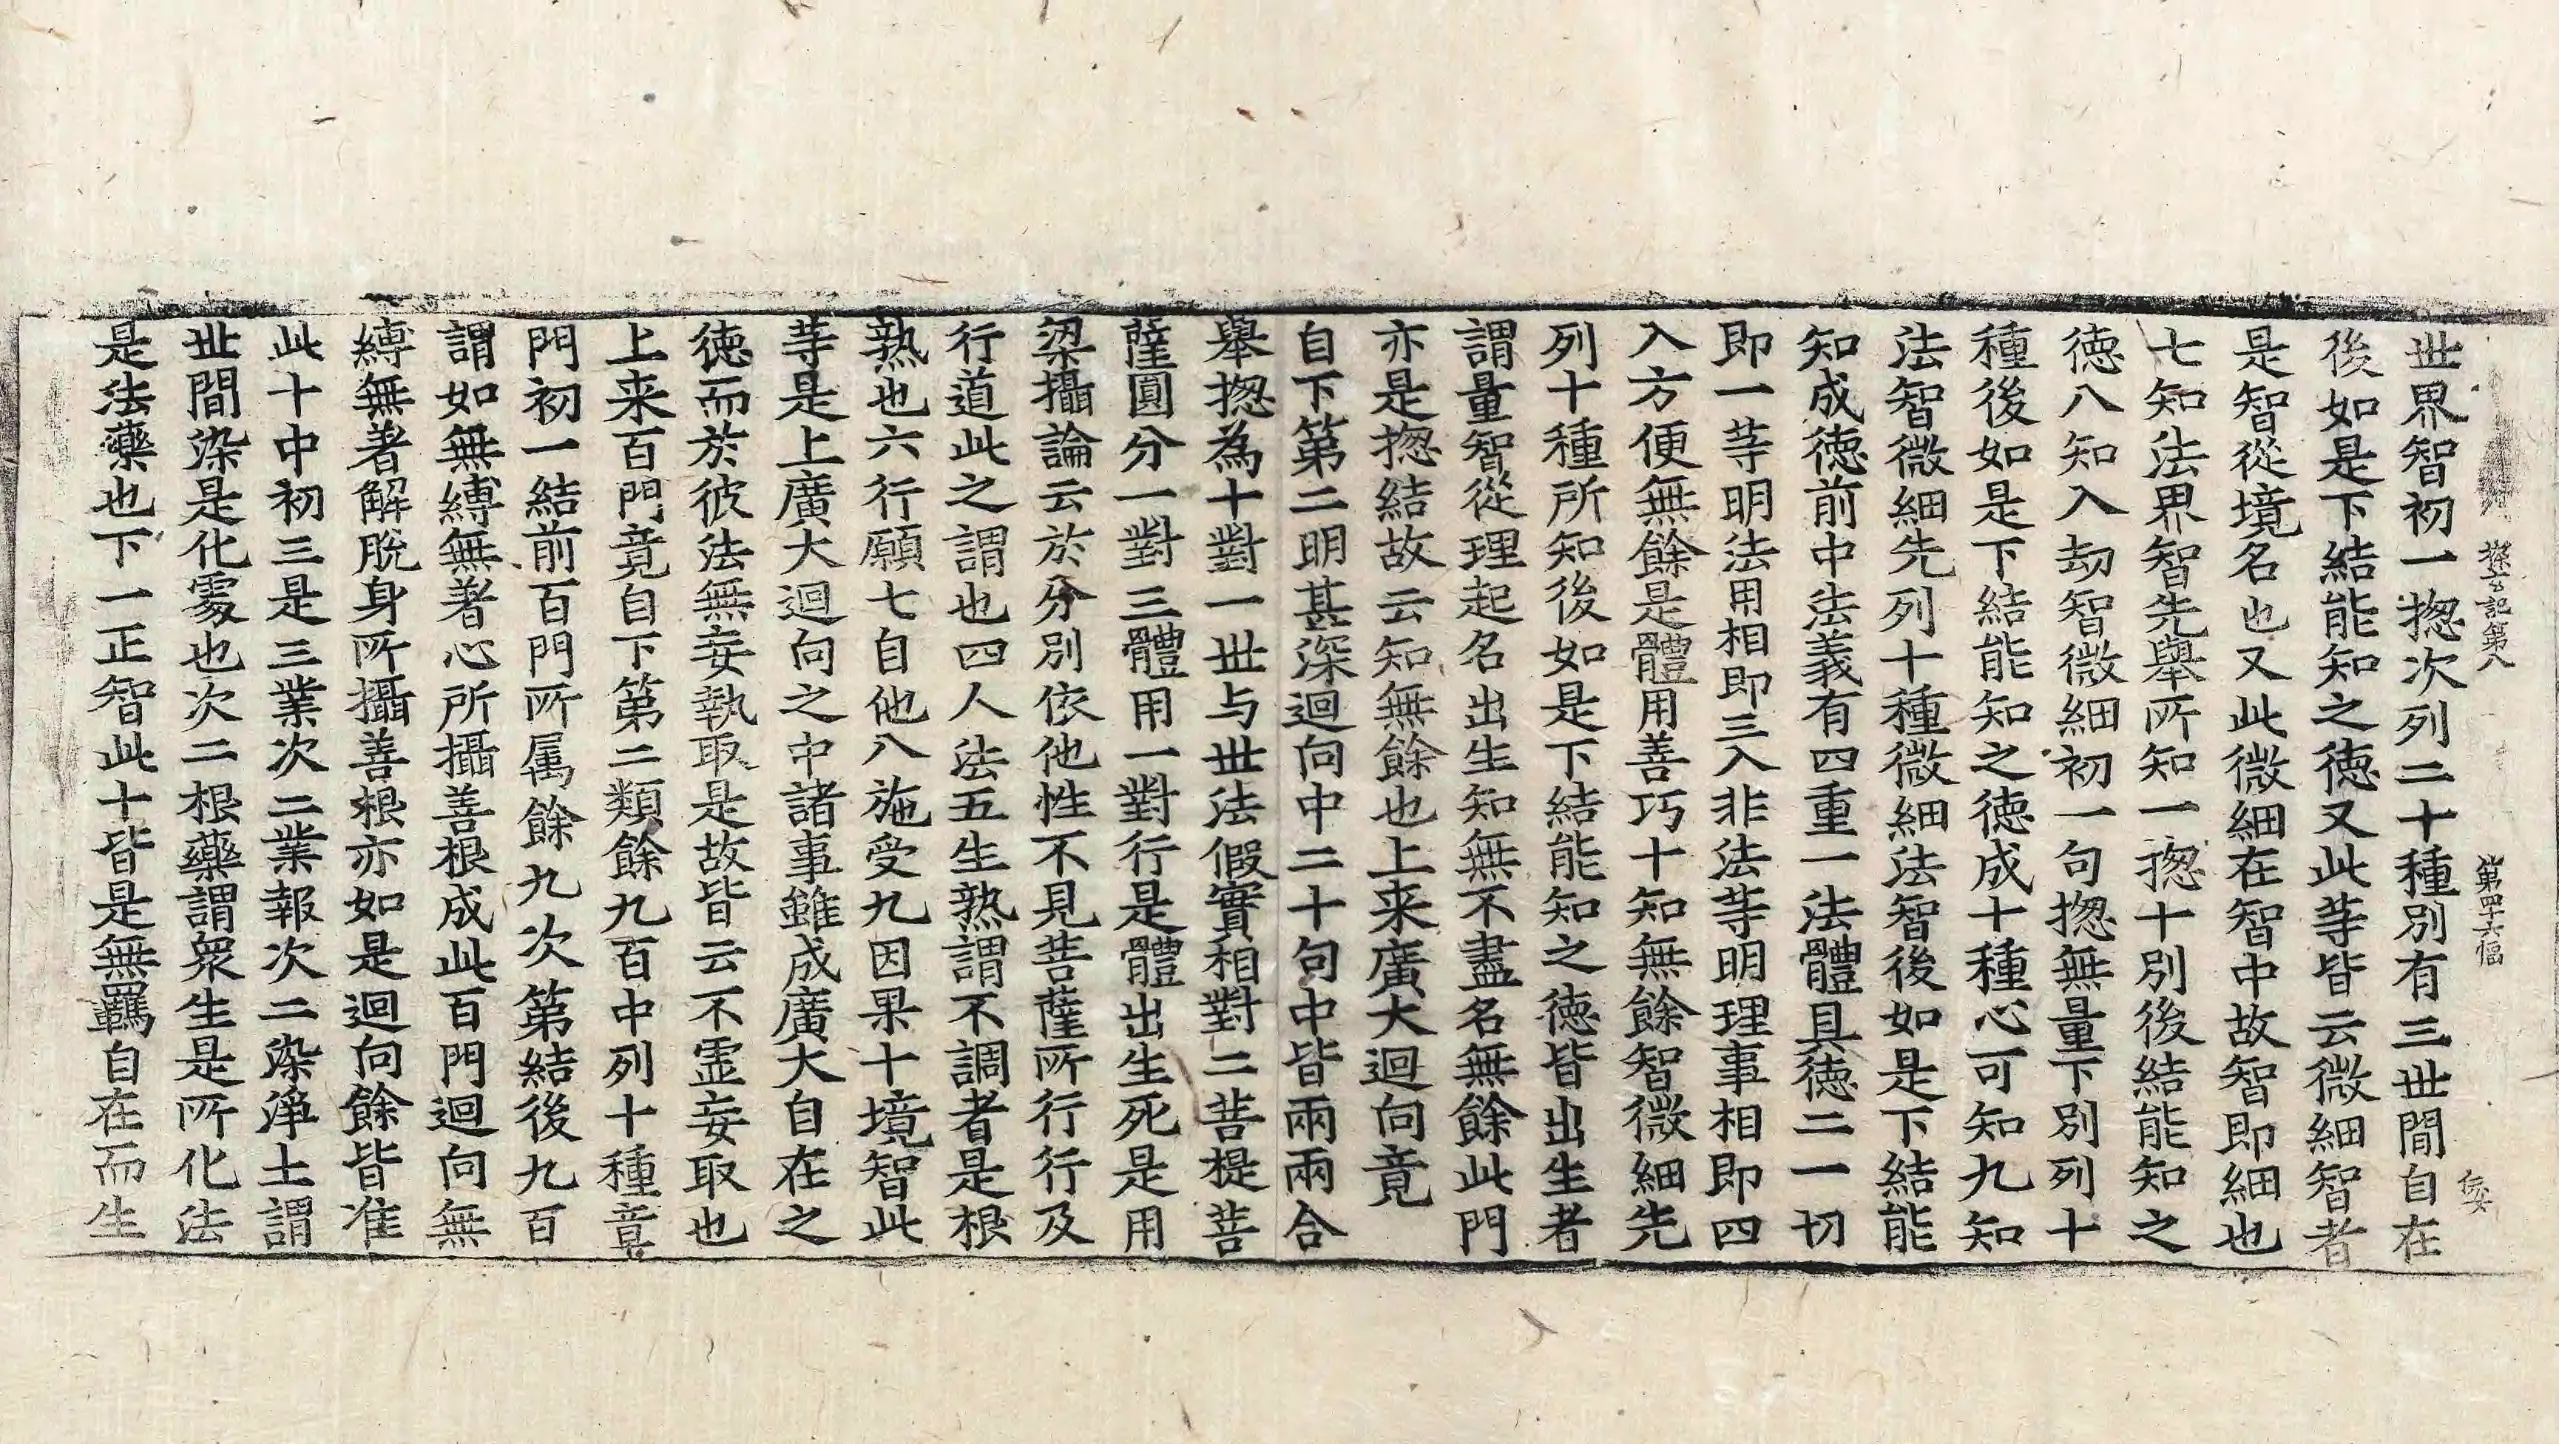 探玄記第八　第四十六幅
世界智初一揔次列二十種別有三世間自在
後如是下結能知之徳又此等皆云微細智者
是智從境名也又此微細在智中故智即細也
七知法界智先舉所知一揔十別後結能知之
徳八知入劫智微細初一句揔無量下別列十
種後如是下結能知之徳成十種心可知九知
法智微細先列十種微細法智後如是下結能
知成徳前中法義有四重一法體具徳二一切
即一等明法用相即三入非法等明理事相即四
入方便無餘是體用善巧十知無餘智微細先
列十種所知後如是下結能知之徳皆出生者
謂量智從理起名出生知無不盡名無餘此門
亦是揔結故云知無餘也上来廣大迴向竟
自下第二明甚深迴向中二十句中皆兩兩合
舉揔為十對一世与世法假實相對二菩提菩
薩圓分一對三體用一對行是體出生死是用
梁攝論云於分別依他性不見菩薩所行行及
行道此之謂也四人法五生熟謂不調者是根
熟也六行願七自他八施受九因果十境智此
等是上廣大迴向之中諸事雖成廣大自在之
徳而於彼法無妄執取是故皆云不虛妄取也
上来百門竟自下第二類餘九百中列十種章
門初一結前百門所属餘九次第結後九百
謂如無縛無著心所攝善根成此百門迴向無
縛無著解脫身所攝善根亦如是迴向餘皆准
此十中初三是三業次二業報次二染淨土謂
世間染是化處也次二根藥謂眾生是所化法
是法藥也下一正智此十皆是無羈自在而生